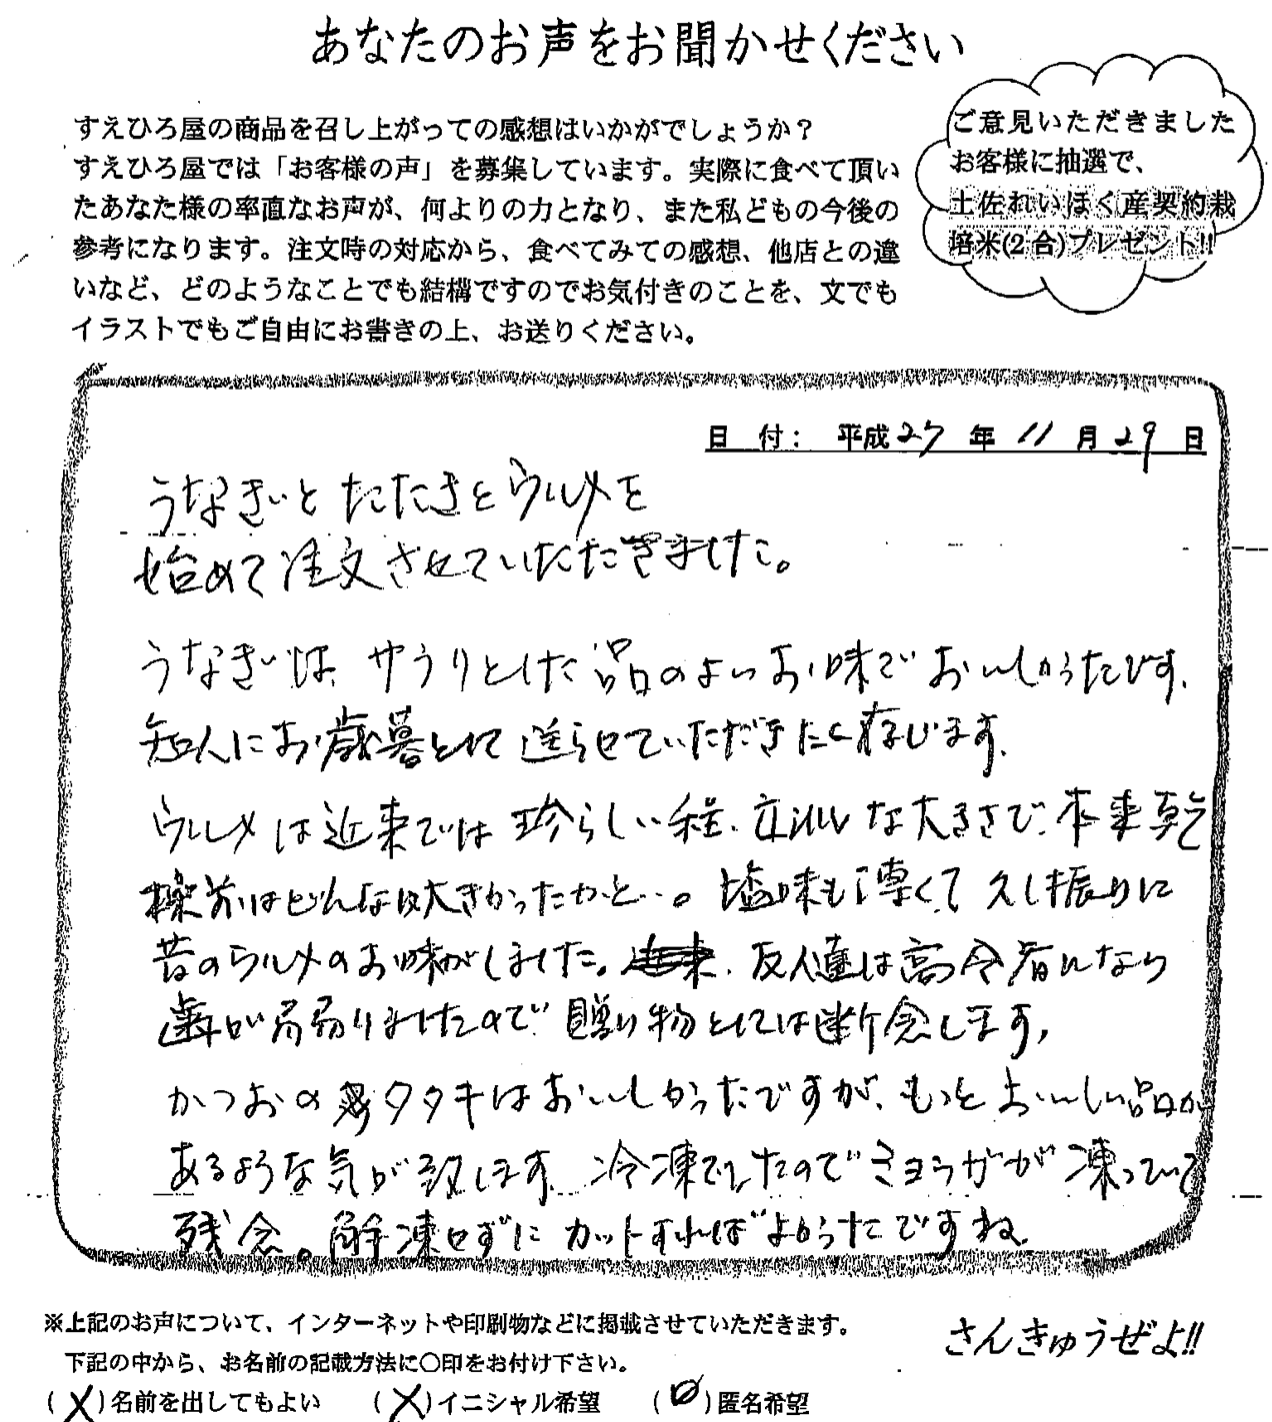 あなたのお声をお聞かせください
すえひろ屋の商品を召し上がっての感想はいかがでしょうか？
すえひろ屋では「お客様の声」を募集しています。実際に食べて頂い
たあなた様の率直なお声が、何よりの力となり、また私どもの今後の
参考になります。注文時の対応から、食べてみての感想、他店との違
いなど、どのようなことでも結構ですのでお気付きのことを、文でも
イラストでもご自由にお書きの上、お送りください。
ご意見いただきました
お客様に抽選で、
土佐れいほく産契約栽
培米(2合)プレゼント!!
日 付： 平成27年11月29日
うなぎとたたきとウルメを
始めて注文させていただきました。
うなぎは、やうりとした品のよいお味でおいしかったです。
知人にお歳暮として送らせていただきたく存じます。
ウルメは近来では珍らしい程、立派な大きさで、本来乾
燥前はどんなに大きかったかと…。塩味も薄くて久し振りに
昔のウルメのお味がしました。友人達は高令者になり
歯が弱りましたので贈り物としては断念します。
かつおのタタキはおいしかったですが、もっとおいしい品が
あるような気が致します。冷凍でしたのでミョウガが凍っていて
残念。解凍せずにカットすればよかったですね。
※上記のお声について、インターネットや印刷物などに掲載させていただきます。
下記の中から、お名前の記載方法に〇印をお付け下さい。
さんきゅうぜよ!!
(X)名前を出してもよい (X)イニシャル希望 (〇)匿名希望